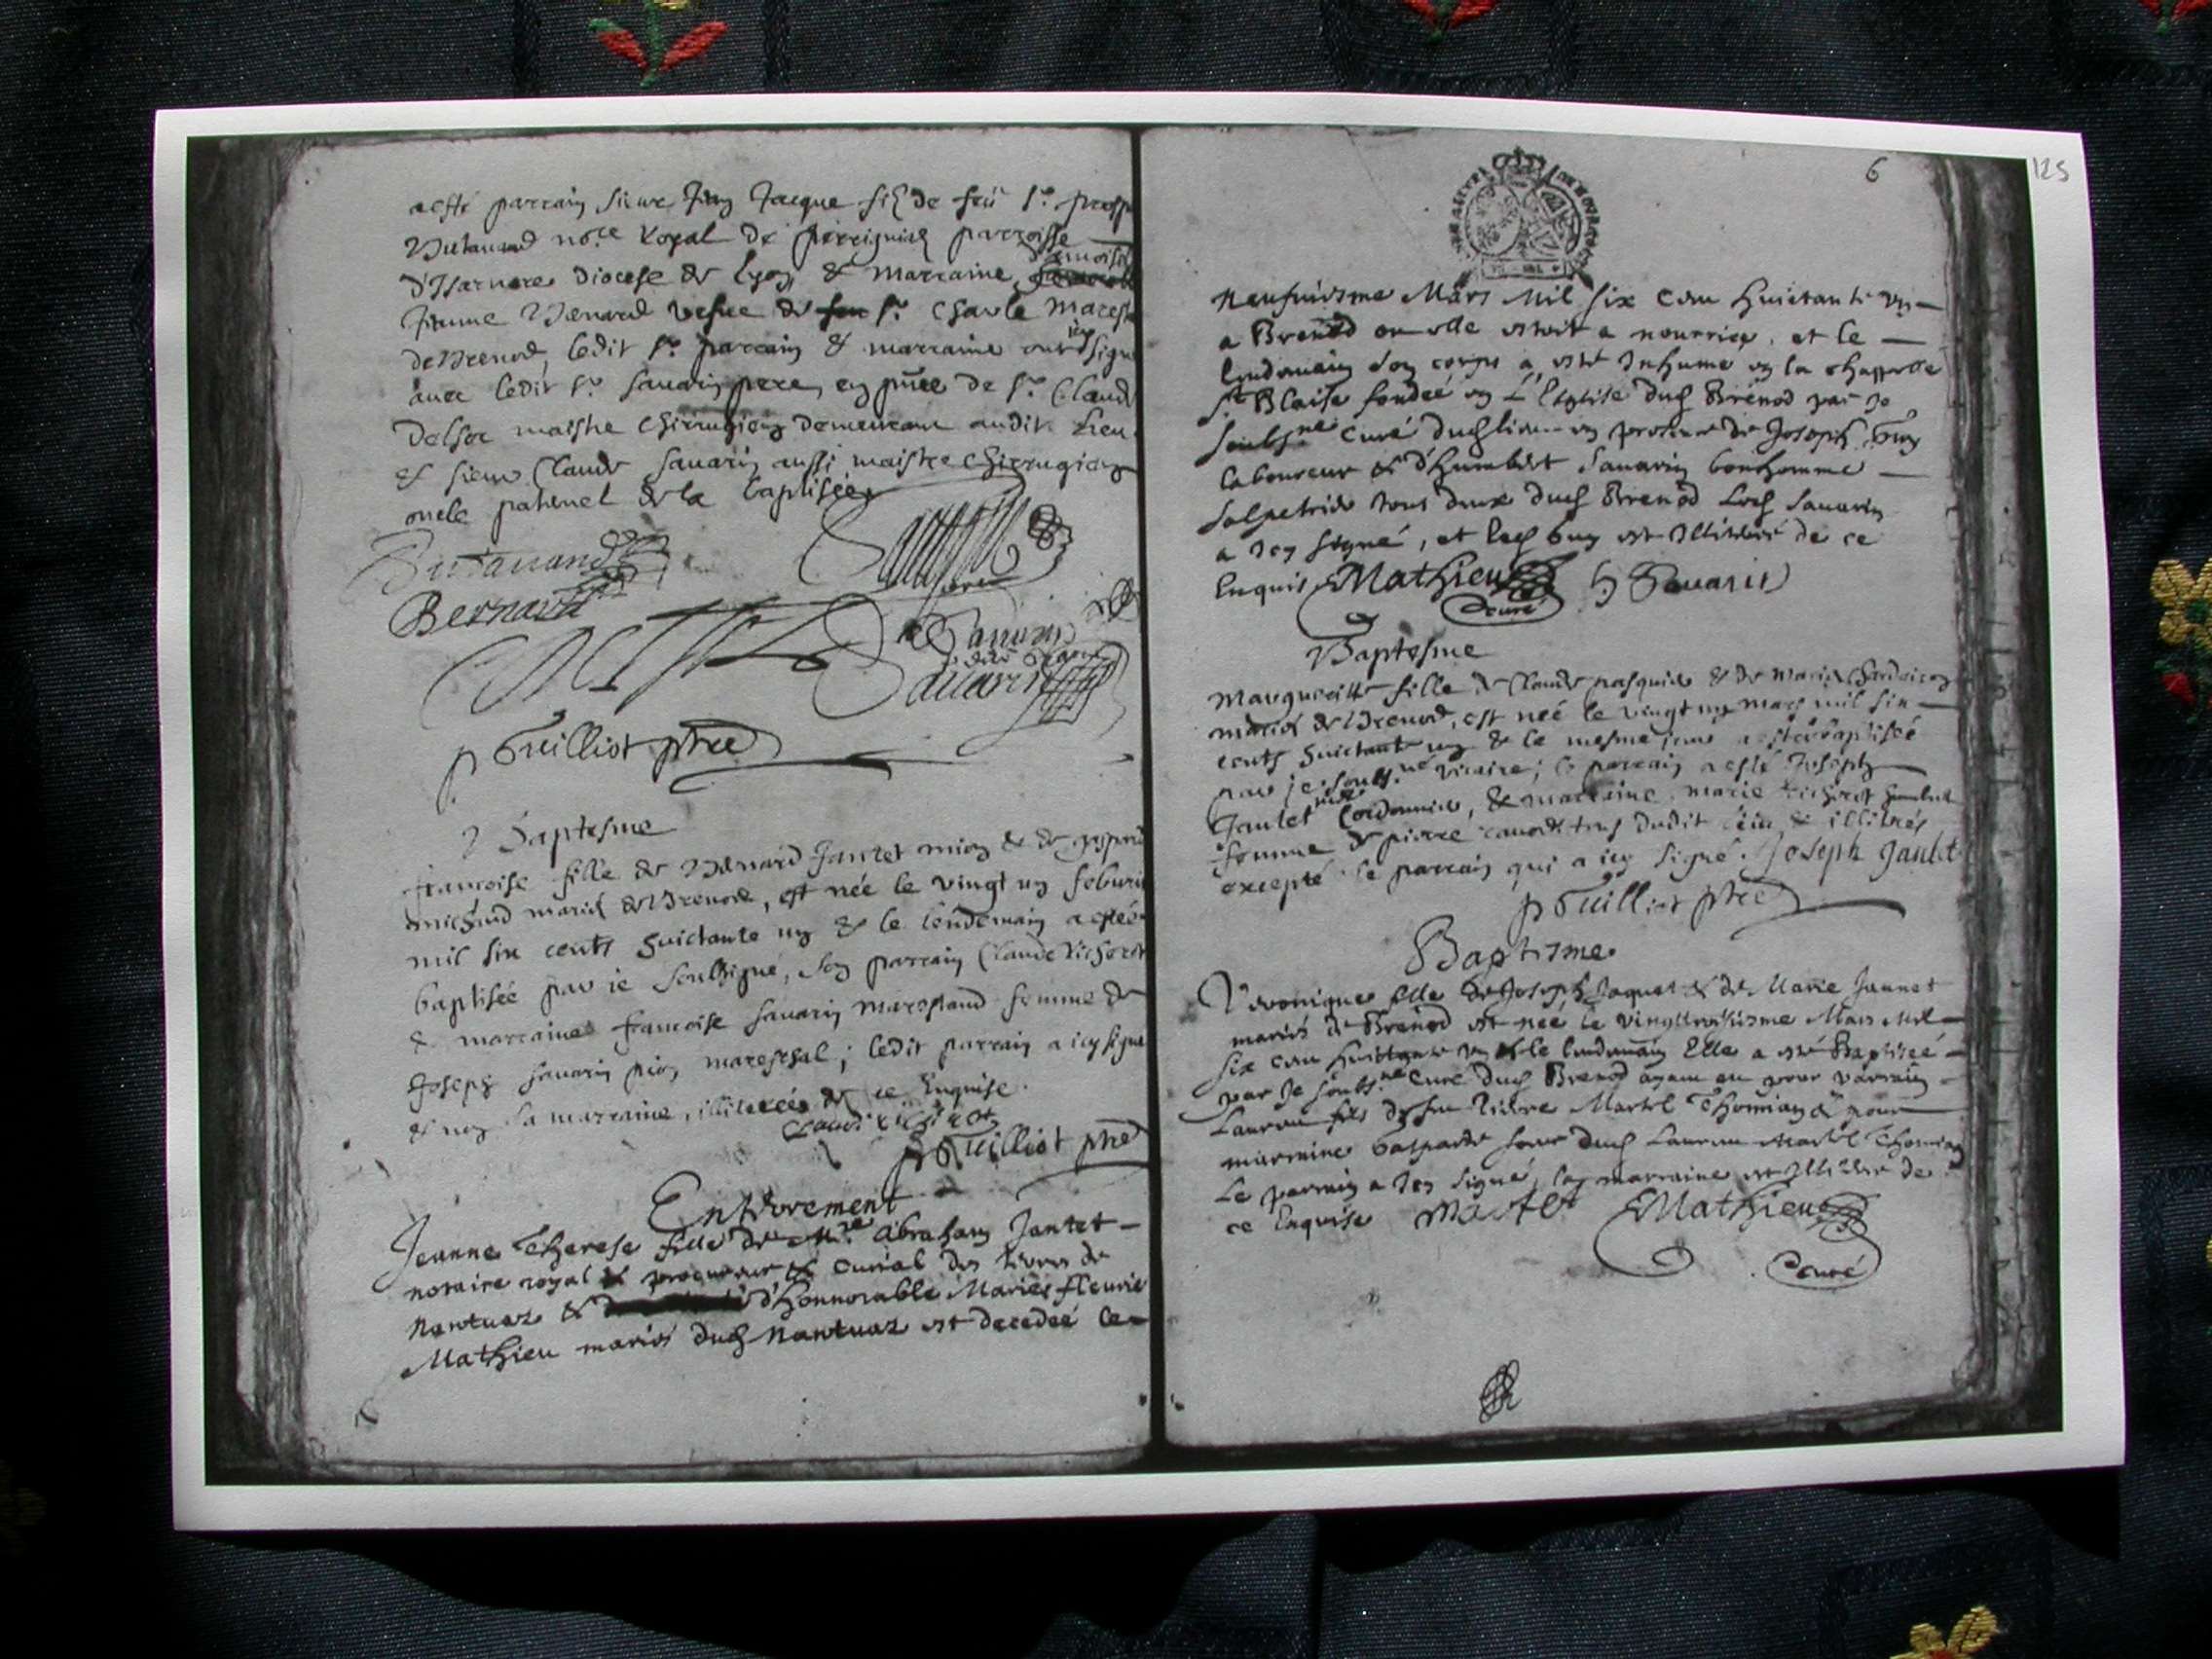 a esté parrain sieur Jean Jacque filz de feu Sr. prosp
nore Royal de perrignieu parroisse
d'Isarnore diocese de Lyon & marraine damoise
Jeanne Benard vefve de Sr. Charle maresc
de Brenod, ledit Sr. parrain & marraine ont icy signé
avec ledit Sr. Savarin pere, en pñce de Sr. Claude
maistre chirrugien demeurant audit Lieu
et sieur Claude Savarin aussi maistre chirrugien
oncle paternel de la baptisée
Bernard
père
Savarin
Savarin
p Guilliot ptre
Baptesme
francoise fille de Benard Jantet mion & de
michaud mariés de Brenod, est née le vingt un feburier
mil six cents huictante un & le lendemain a esté
baptisée par je soubsigné, son parrain Claude Richerot
& marraine francoise Savarin marchand femme de
Joseph Savarin pion mareschal; ledit parrain a icy signé
& non la marraine, illiterée de ce Enquise.
Claude Richerot
p Guilliot ptre
Enterrement
Jeanne Therese fille de Mre. Abraham Jantet
notaire royal & procureur & curial des terres de
Nantuaz & d'honnorable Marie fleurie
Mathieu mariés dud Nantuaz est decedeé le
6
125
neufviesme Mars Mil six cent huictante un
a Brenod ou elle estoit a nourrice, et le
lendemain son corps a esté Inhumé en la chappelle
St Blaise fondeé en L'Eglise dud Brenod par Je
soubsne Curé dud lieu en presence de Joseph Guy
laboureur & d'Humbert Savarin bonhomme
salpetrier tous deux dud Brenod Led Savarin
a icy signé, et led Guy est Illitéré de ce
Enquis EMathieu H Savarin
Curé
Baptesme
Margueritte fille de Claude pasquier & de Marie
mariés de Brenod, est née le vingt un mars mil six
cents huictante un & le mesme jour a esté baptisée
par je soubsné vicaire; le parrain a esté Joseph
Jantet Cordonnier, & marraine, marie Richerot humbert
femme de pierre tous dudit lieu & illitérés
excepté le parrain qui a icy signé. Joseph Jantet
p Guilliot ptre
Baptesme
Véronique fille de Joseph Jaquet & de Marie Jannet
mariés de Brenod est neé le vingttroisiesme Mars Mil
six cent huictante un & le lendemain Elle a esté Baptiseé
par Je soubsne Curé dud Brenod ayant eu pour parrain
Laurent fils de feu Pierre Martel Thomian & pour
marraine Gasparde soeur dud Laurent Martel Thomian
Le parrain a icy signé, la marraine est Illiterée de
ce Enquise Martel EMathieu
Curé